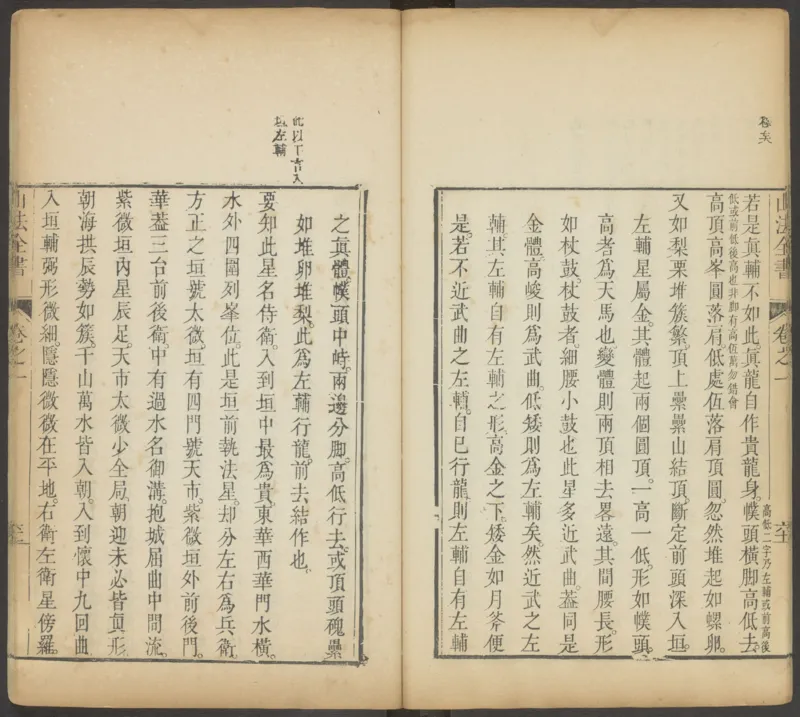 巻矣
若是眞輔不如此。眞龍自作貴龍身。幞頭橫脚高低去。高低二字乃左輔或前高後
低或前低後高也非脚有高伍萬勿錯會
高頂高峯圓落肩。低處伍落肩頂圓。忽然堆起如螺卵。
又如梨栗堆簇繁。頂上纍纍山結頂。斷定前頭深入垣。
左輔星屬金。其體起兩個圓頂。一高一低。形如幞頭。
高者爲天馬也。變體則兩頂相去畧遠。其間腰長。形
如杖鼓。杖鼓者。細腰小鼓也此星多近武曲。葢同是
金體。高峻則爲武曲。低矮則爲左輔矣。然近武之左
輔。其左輔自有左輔之形。高金之下。矮金如月斧便
是。若不近武曲之左輔。自已行龍。則左輔自有左輔
山法全書
卷之一
此以下言入
垣左輔
之眞體。幞頭中峙。兩邊分脚。高低行去。或頂頭磈纍
如堆卵堆梨。此爲左輔行龍。前去結作也。
要知此星名侍衛。入到垣中最爲貴。東華西華門水橫。
水外四圍列峯位。此是垣前執法星。却分左右爲兵衛。
方正之垣號太微。垣有四門號天市。紫微垣外前後門。
華葢三台前後衛。中有過水名御溝。抱城屈曲中間流。
紫微垣內星辰足。天市太微少全局。朝迎未必皆眞形。
朝海拱辰勢如簇。千山萬水皆入朝。入到懷中九回曲。
入垣輔弼形微細。隱隱微微在平地。右衛左衛星傍羅。
山法全書
卷之一